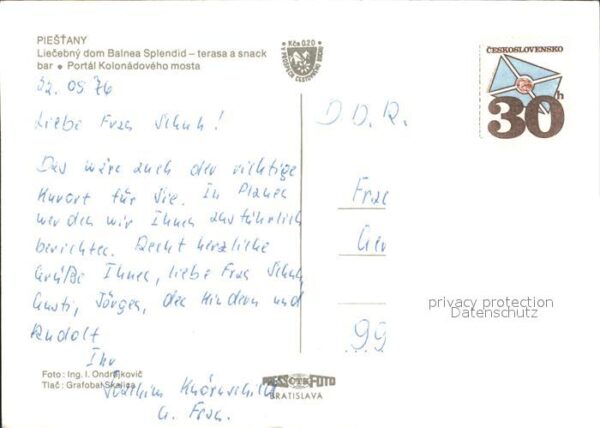 PIEŠŤANY
Liečebný dom Balnea Splendid – terasa a snack
bar ● Portál Kolonádového mosta
Kčs 0,20
ČESKOSLOVENSKO
30h
22.09.76
Liebe Frau Schuh!
D.D.R.
Das wäre auch der richtige
Kurort für Sie. In Plauen
werden wir Ihnen ausführlich
berichten. Recht herzliche
Grüße Ihnen, liebe Frau Schuh,
Gusti, Jürgen, den Kindern und
Rudolf
Ihr
Joachim
u. Frau.
Frau
Ger
99
privacy protection
Datenschutz
Foto: Ing. I. Ondrejkovič
Tlač: Grafobal Skalica
PRESSFOTO
BRATISLAVA